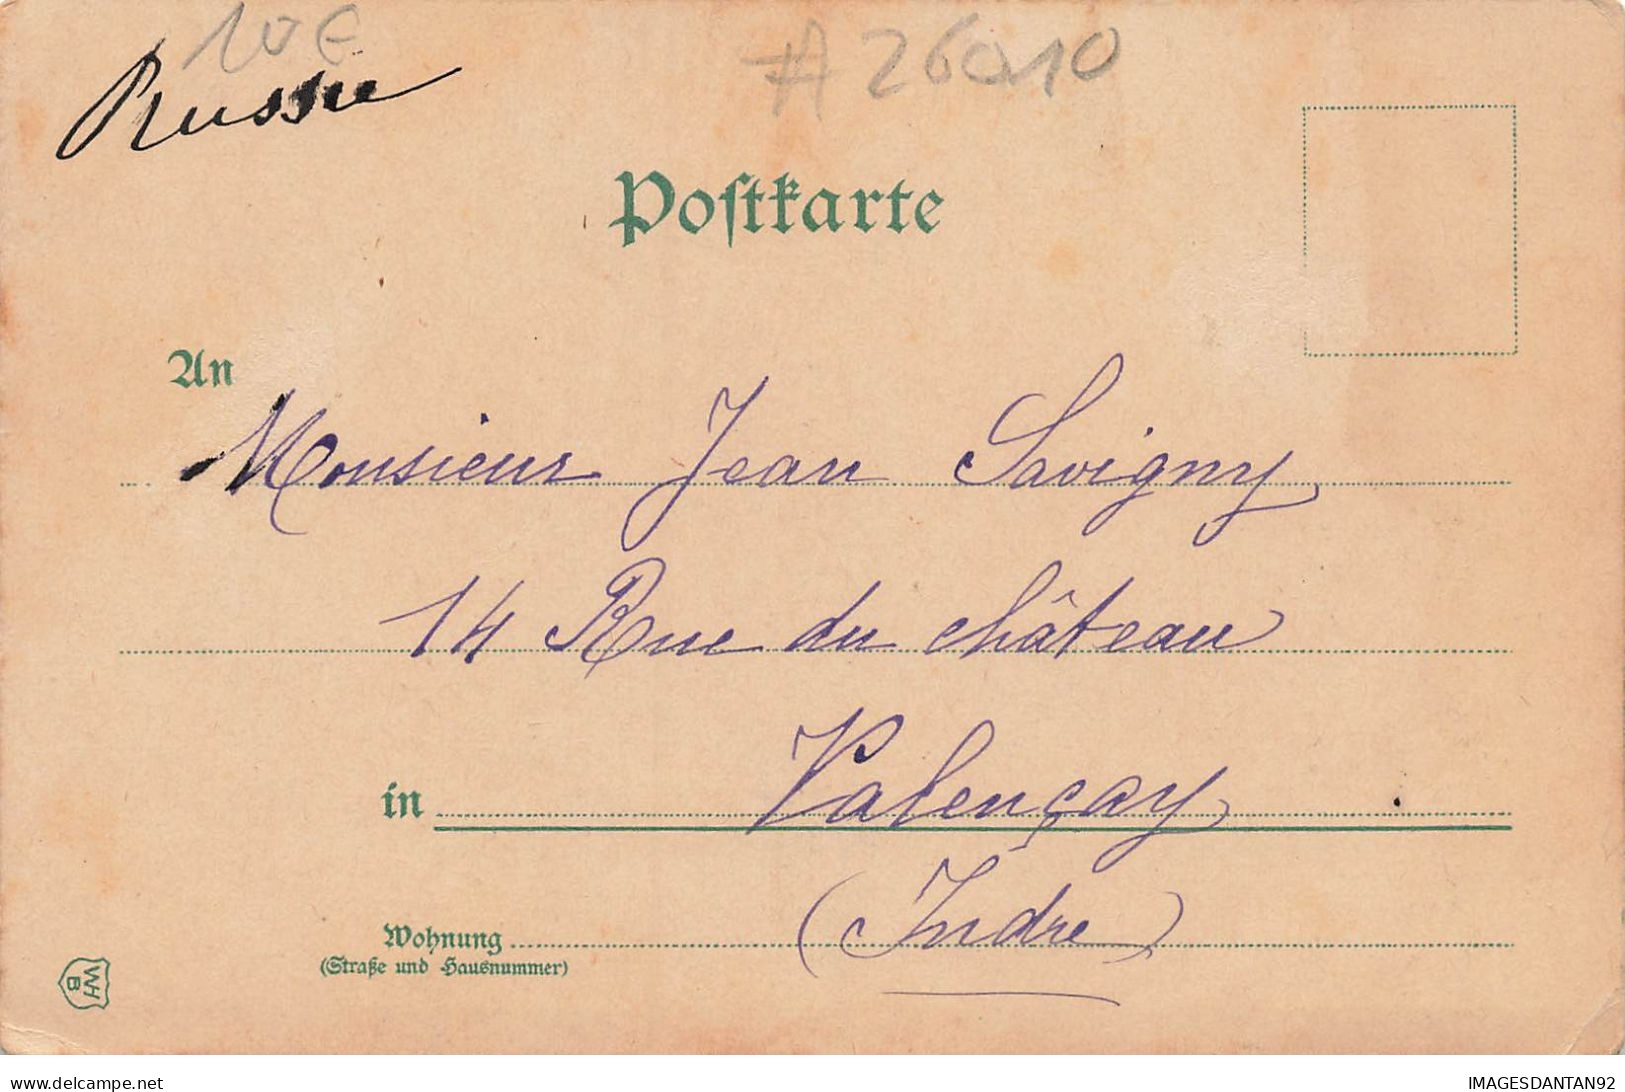 10 €
# 26010
Russie
Postkarte
An
Monsieur Jean Savigny
14 Rue du château
in Valençay
Wohnung (Indre)
(Straße und Hausnummer)
WH
B
www.delcampe.net
IMAGESDANTAN92